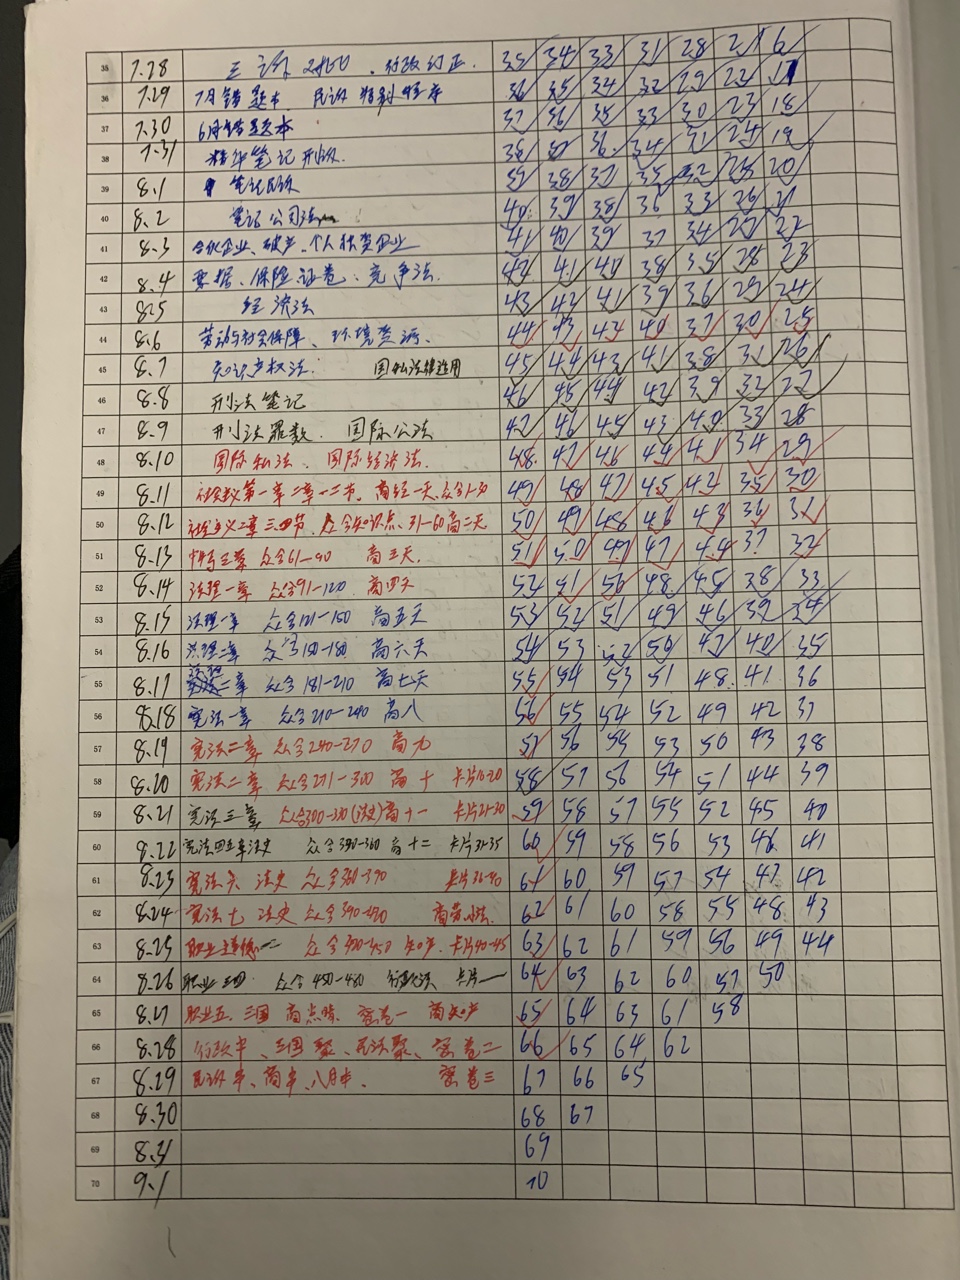 35 7.28 三 订正. 35 34 33 31 28 21 6
36 7.29 7月错题本. 民诉 特别程序 36 35 34 32 29 22 17
37 7.30 6月错题本 37 36 35 33 30 23 18
38 7.31 精华笔记 刑诉. 38 37 36 34 31 24 19
39 8.1 笔记民诉 39 38 37 35 32 25 20
40 8.2 笔记公司法 40 39 38 36 33 26 21
41 8.3 合伙企业、破产、个人独资企业 41 40 39 37 34 27 22
42 8.4 票据、保险、证券、竞争法. 42 41 40 38 35 28 23
43 8.5 经济法 43 42 41 39 36 29 24
44 8.6 劳动与社会保障、环境资源. 44 43 42 40 37 30 25
45 8.7 知识产权法. 国私法律适用 45 44 43 41 38 31 26
46 8.8 刑法笔记 46 45 44 42 39 32 27
47 8.9 刑法罪数. 国际公法 47 46 45 43 40 33 28
48 8.10 国际私法、国际经济法. 48 47 46 44 41 34 29
49 8.11 社会主义第一章二章一二节、商经一天、众合1-30 49 48 47 45 42 35 30
50 8.12 社会主义二章三四节、众合知识点、31-60 商二天 50 49 48 46 43 36 31
51 8.13 三章 众合61-90 商三天. 51 50 49 47 44 37 32
52 8.14 法理一章 众合91-120 商四天 52 51 50 48 45 38 33
53 8.15 法理一章 众合121-150 商五天 53 52 51 49 46 39 34
54 8.16 法理二章 众合150-180 商六天 54 53 52 50 47 40 35
55 8.17 法理二章 众合181-210 商七天 55 54 53 51 48 41 36
56 8.18 宪法一章 众合210-240 商八 56 55 54 52 49 42 37
57 8.19 宪法二章 众合240-270 商九 57 56 55 53 50 43 38
58 8.20 宪法二章 众合271-300 商十 卡片16-20 58 57 56 54 51 44 39
59 8.21 宪法三章 众合300-330(法史)商十一 卡片21-30 59 58 57 55 52 45 40
60 8.22 宪法四五章法史 众合330-360 商十二 卡片31-35 60 59 58 56 53 46 41
61 8.23 宪法六 法史 众合360-390 卡片36-40 61 60 59 57 54 47 42
62 8.24 宪法七 法史 众合390-420 商劳 法. 62 61 60 58 55 48 43
63 8.25 职业道德一二 众合 -450 知产. 卡片40-45 63 62 61 59 56 49 44
64 8.26 职业三四. 众合450-480 行政法 卡片 64 63 62 60 57 50
65 8.27 职业五、三国 商点睛. 密卷一 商知产 65 64 63 61 58
66 8.28 行政半、三国聚、民法聚、密卷二 66 65 64 62
67 8.29 民诉半、商半、八月半、 密卷三 67 66 65
68 8.30 68 67
69 8.31 69
70 9.1 70